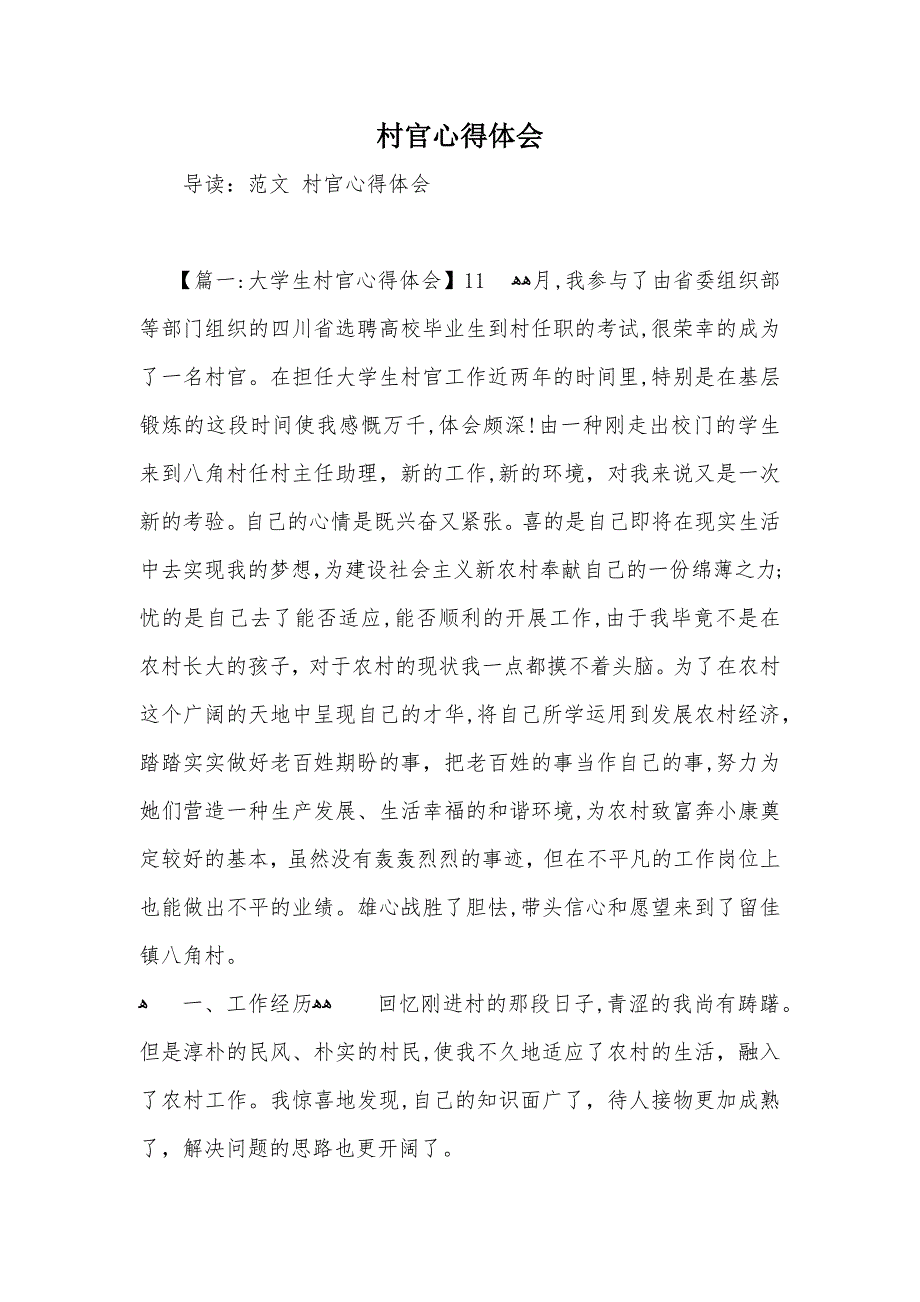 村官心得体会
导读：范文 村官心得体会
【篇一:大学生村官心得体会】11 ﻫﻫ月,我参与了由省委组织部
等部门组织的四川省选聘高校毕业生到村任职的考试,很荣幸的成为
了一名村官。在担任大学生村官工作近两年的时间里,特别是在基层
锻炼的这段时间使我感慨万千,体会颇深!由一种刚走出校门的学生
来到八角村任村主任助理，新的工作,新的环境，对我来说又是一次
新的考验。自己的心情是既兴奋又紧张。喜的是自己即将在现实生活
中去实现我的梦想,为建设社会主义新农村奉献自己的一份绵薄之力;
忧的是自己去了能否适应,能否顺利的开展工作,由于我毕竟不是在
农村长大的孩子，对于农村的现状我一点都摸不着头脑。为了在农村
这个广阔的天地中呈现自己的才华,将自己所学运用到发展农村经济，
踏踏实实做好老百姓期盼的事，把老百姓的事当作自己的事,努力为
她们营造一种生产发展、生活幸福的和谐环境,为农村致富奔小康奠
定较好的基本，虽然没有轰轰烈烈的事迹，但在不平凡的工作岗位上
也能做出不平的业绩。雄心战胜了胆怯,带头信心和愿望来到了留佳
镇八角村。
ﻫ 一、工作经历ﻫﻫ 回忆刚进村的那段日子,青涩的我尚有踌躇。
但是淳朴的民风、朴实的村民,使我不久地适应了农村的生活，融入
了农村工作。我惊喜地发现,自己的知识面广了，待人接物更加成熟
了，解决问题的思路也更开阔了。